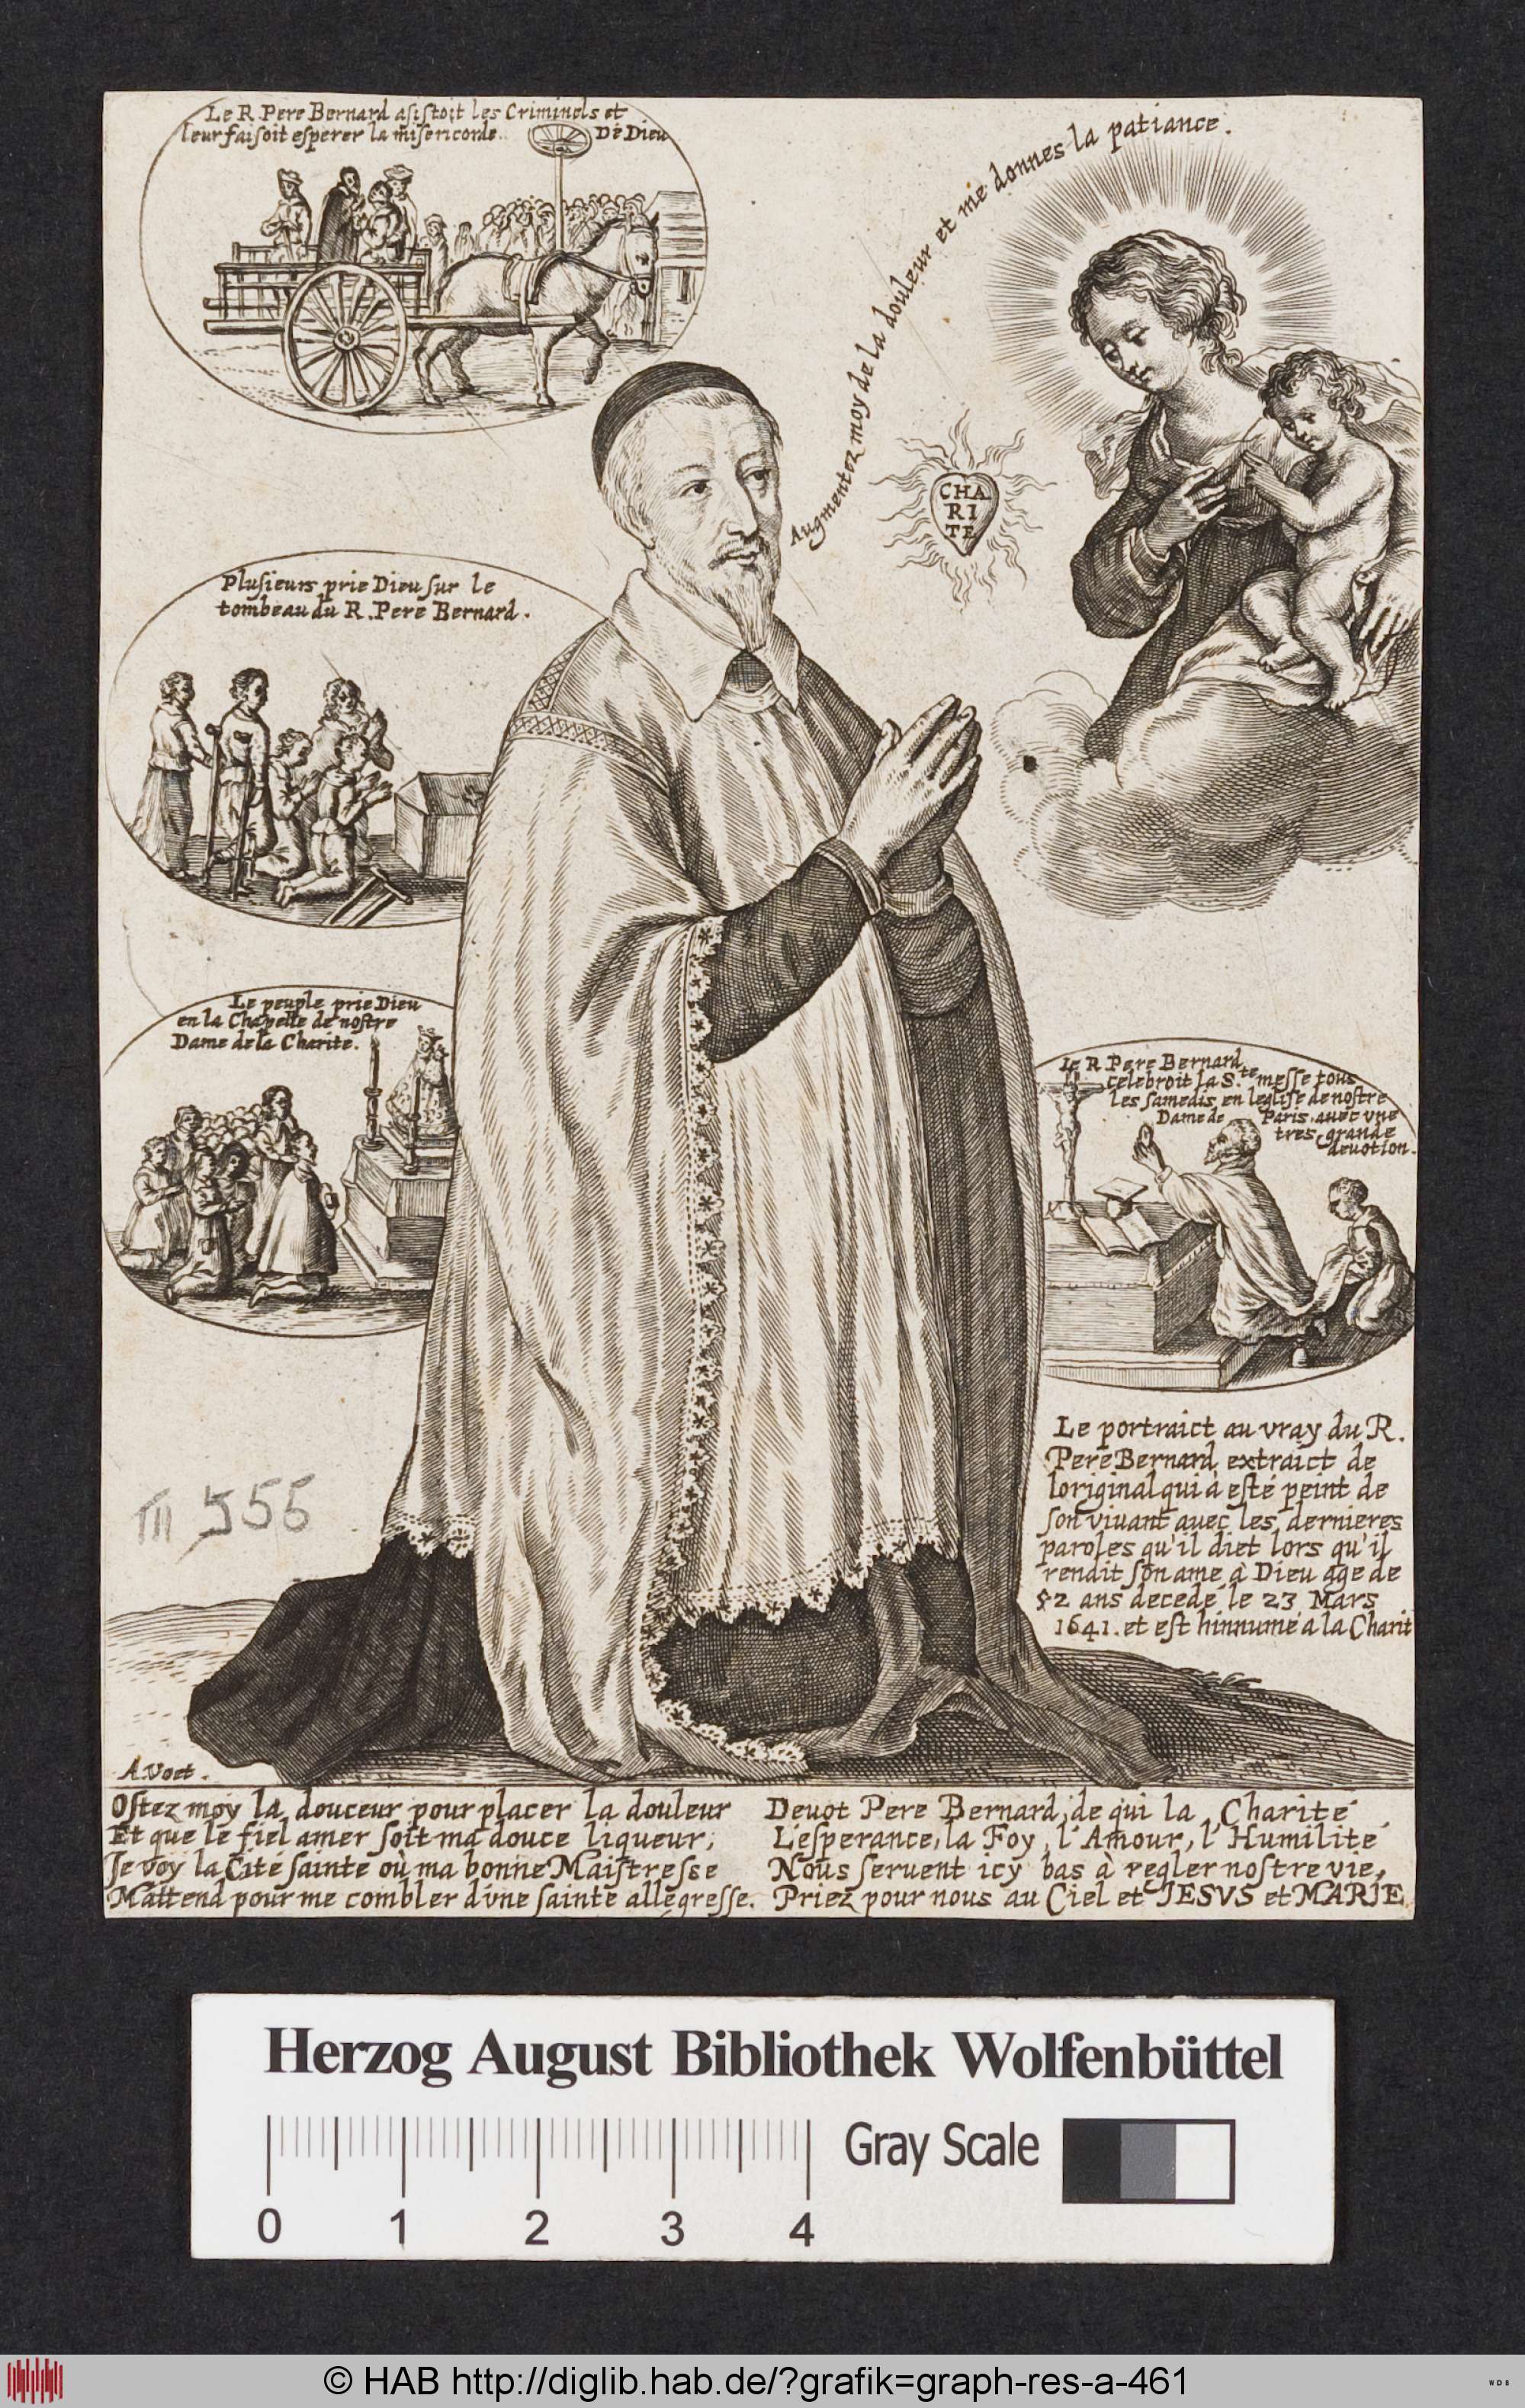 Le R. Pere Bernard asistoit les Criminels et
leur faisoit esperer la misericorde. De Dieu
Augmentez moy de la douleur et me donnes la patiance.
CHA
RI
TE
Plusieurs prie Dieu sur le
tombeau du R. Pere Bernard.
Le peuple prie Dieu
en la Chapelle de nostre
Dame de la Charite.
Le R. Pere Bernard
celebroit la S.te messe tous
les samedis en leglise de nostre
Dame de Paris avec vne
tres grande
deuotion.
Le portraict au vray du R.
Pere Bernard extraict de
loriginal qui à esté peint de
son viuant auec les dernieres
paroles qu'il diet lors qu'il
rendit son ame a Dieu age de
52 ans decede le 23 Mars
1641. et est hinnumé a la Charit
III 556
A. Voet.
Ostez moy la douceur pour placer la douleur
Et que le fiel amer soit ma douce liqueur,
Je voy la Cité sainte où ma bonne Maistresse
Mattend pour me combler dvne sainte allegresse.
Deuot Pere Bernard, de qui la Charité
L'esperance, la Foy, l'Amour, l'Humilité
Nous seruent icy bas à regler nostre vie,
Priez pour nous au Ciel et JESVS et MARIE
Herzog August Bibliothek Wolfenbüttel
Gray Scale
0 1 2 3 4
© HAB http://diglib.hab.de/?grafik=graph-res-a-461
WDB